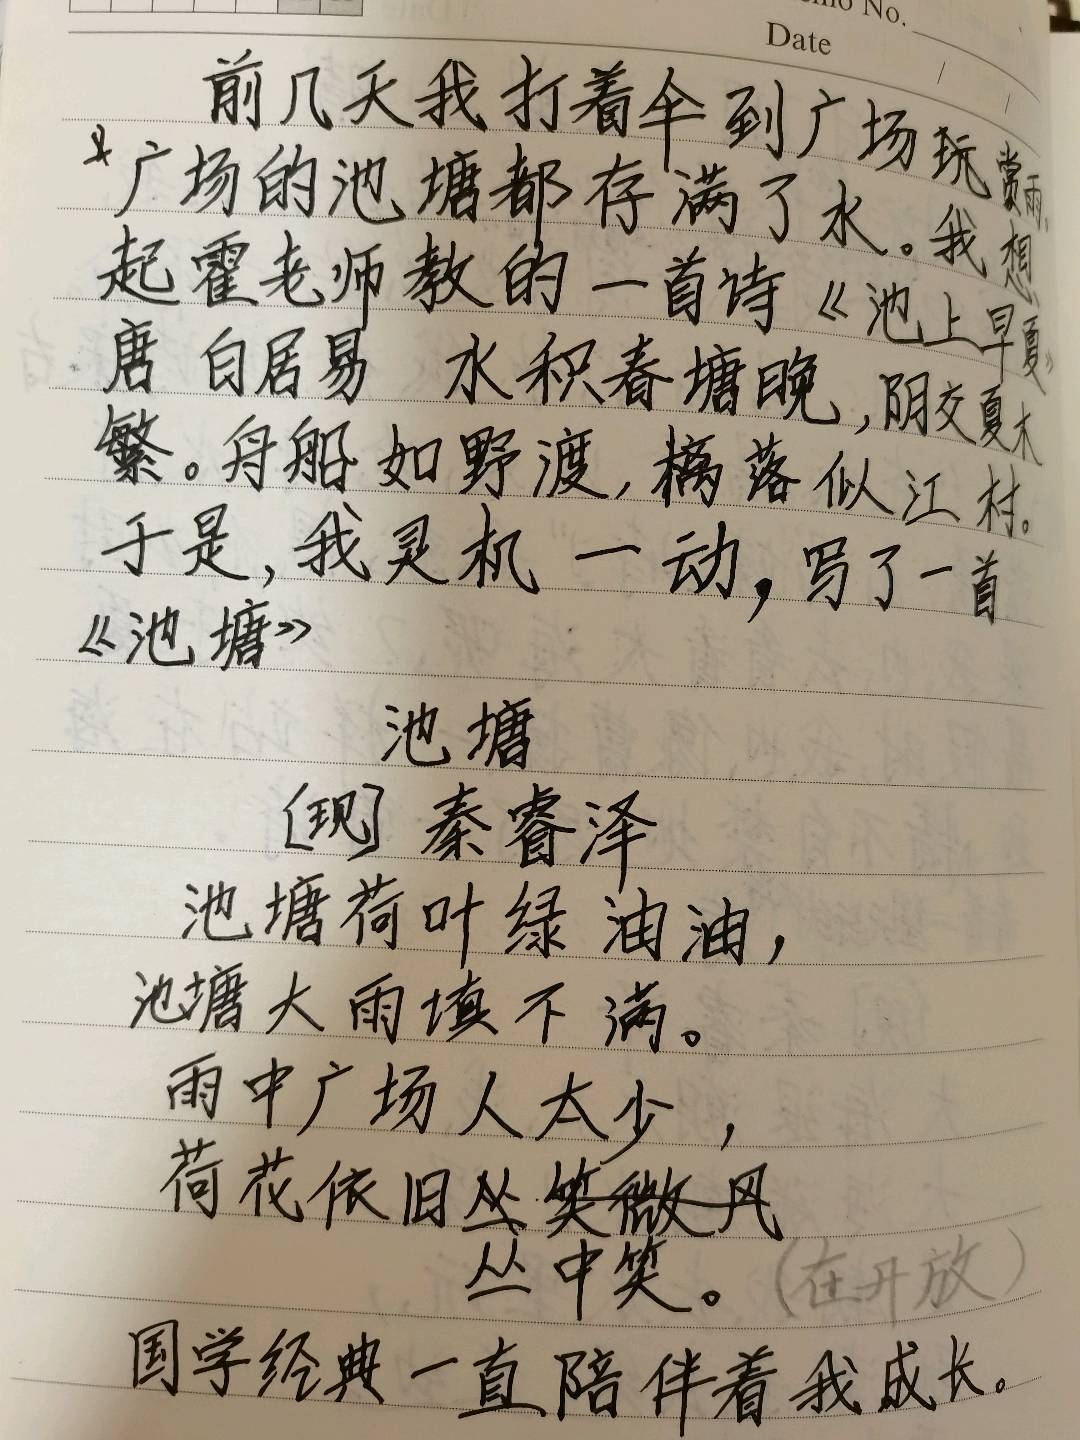 Memo No.
Date
前几天我打着伞到广场玩赏雨,
广场的池塘都存满了水。我想
起霍老师教的一首诗《池上早夏》
唐 白居易 水积春塘晚,阴交夏木
繁。舟船如野渡,樆落似江村。
于是,我灵机一动,写了一首
《池塘》
池塘
[现] 秦睿泽
池塘荷叶绿油油,
池塘大雨填不满。
雨中广场人太少,
荷花依旧丛笑微风
丛中笑。(在开放)
国学经典一直陪伴着我成长。